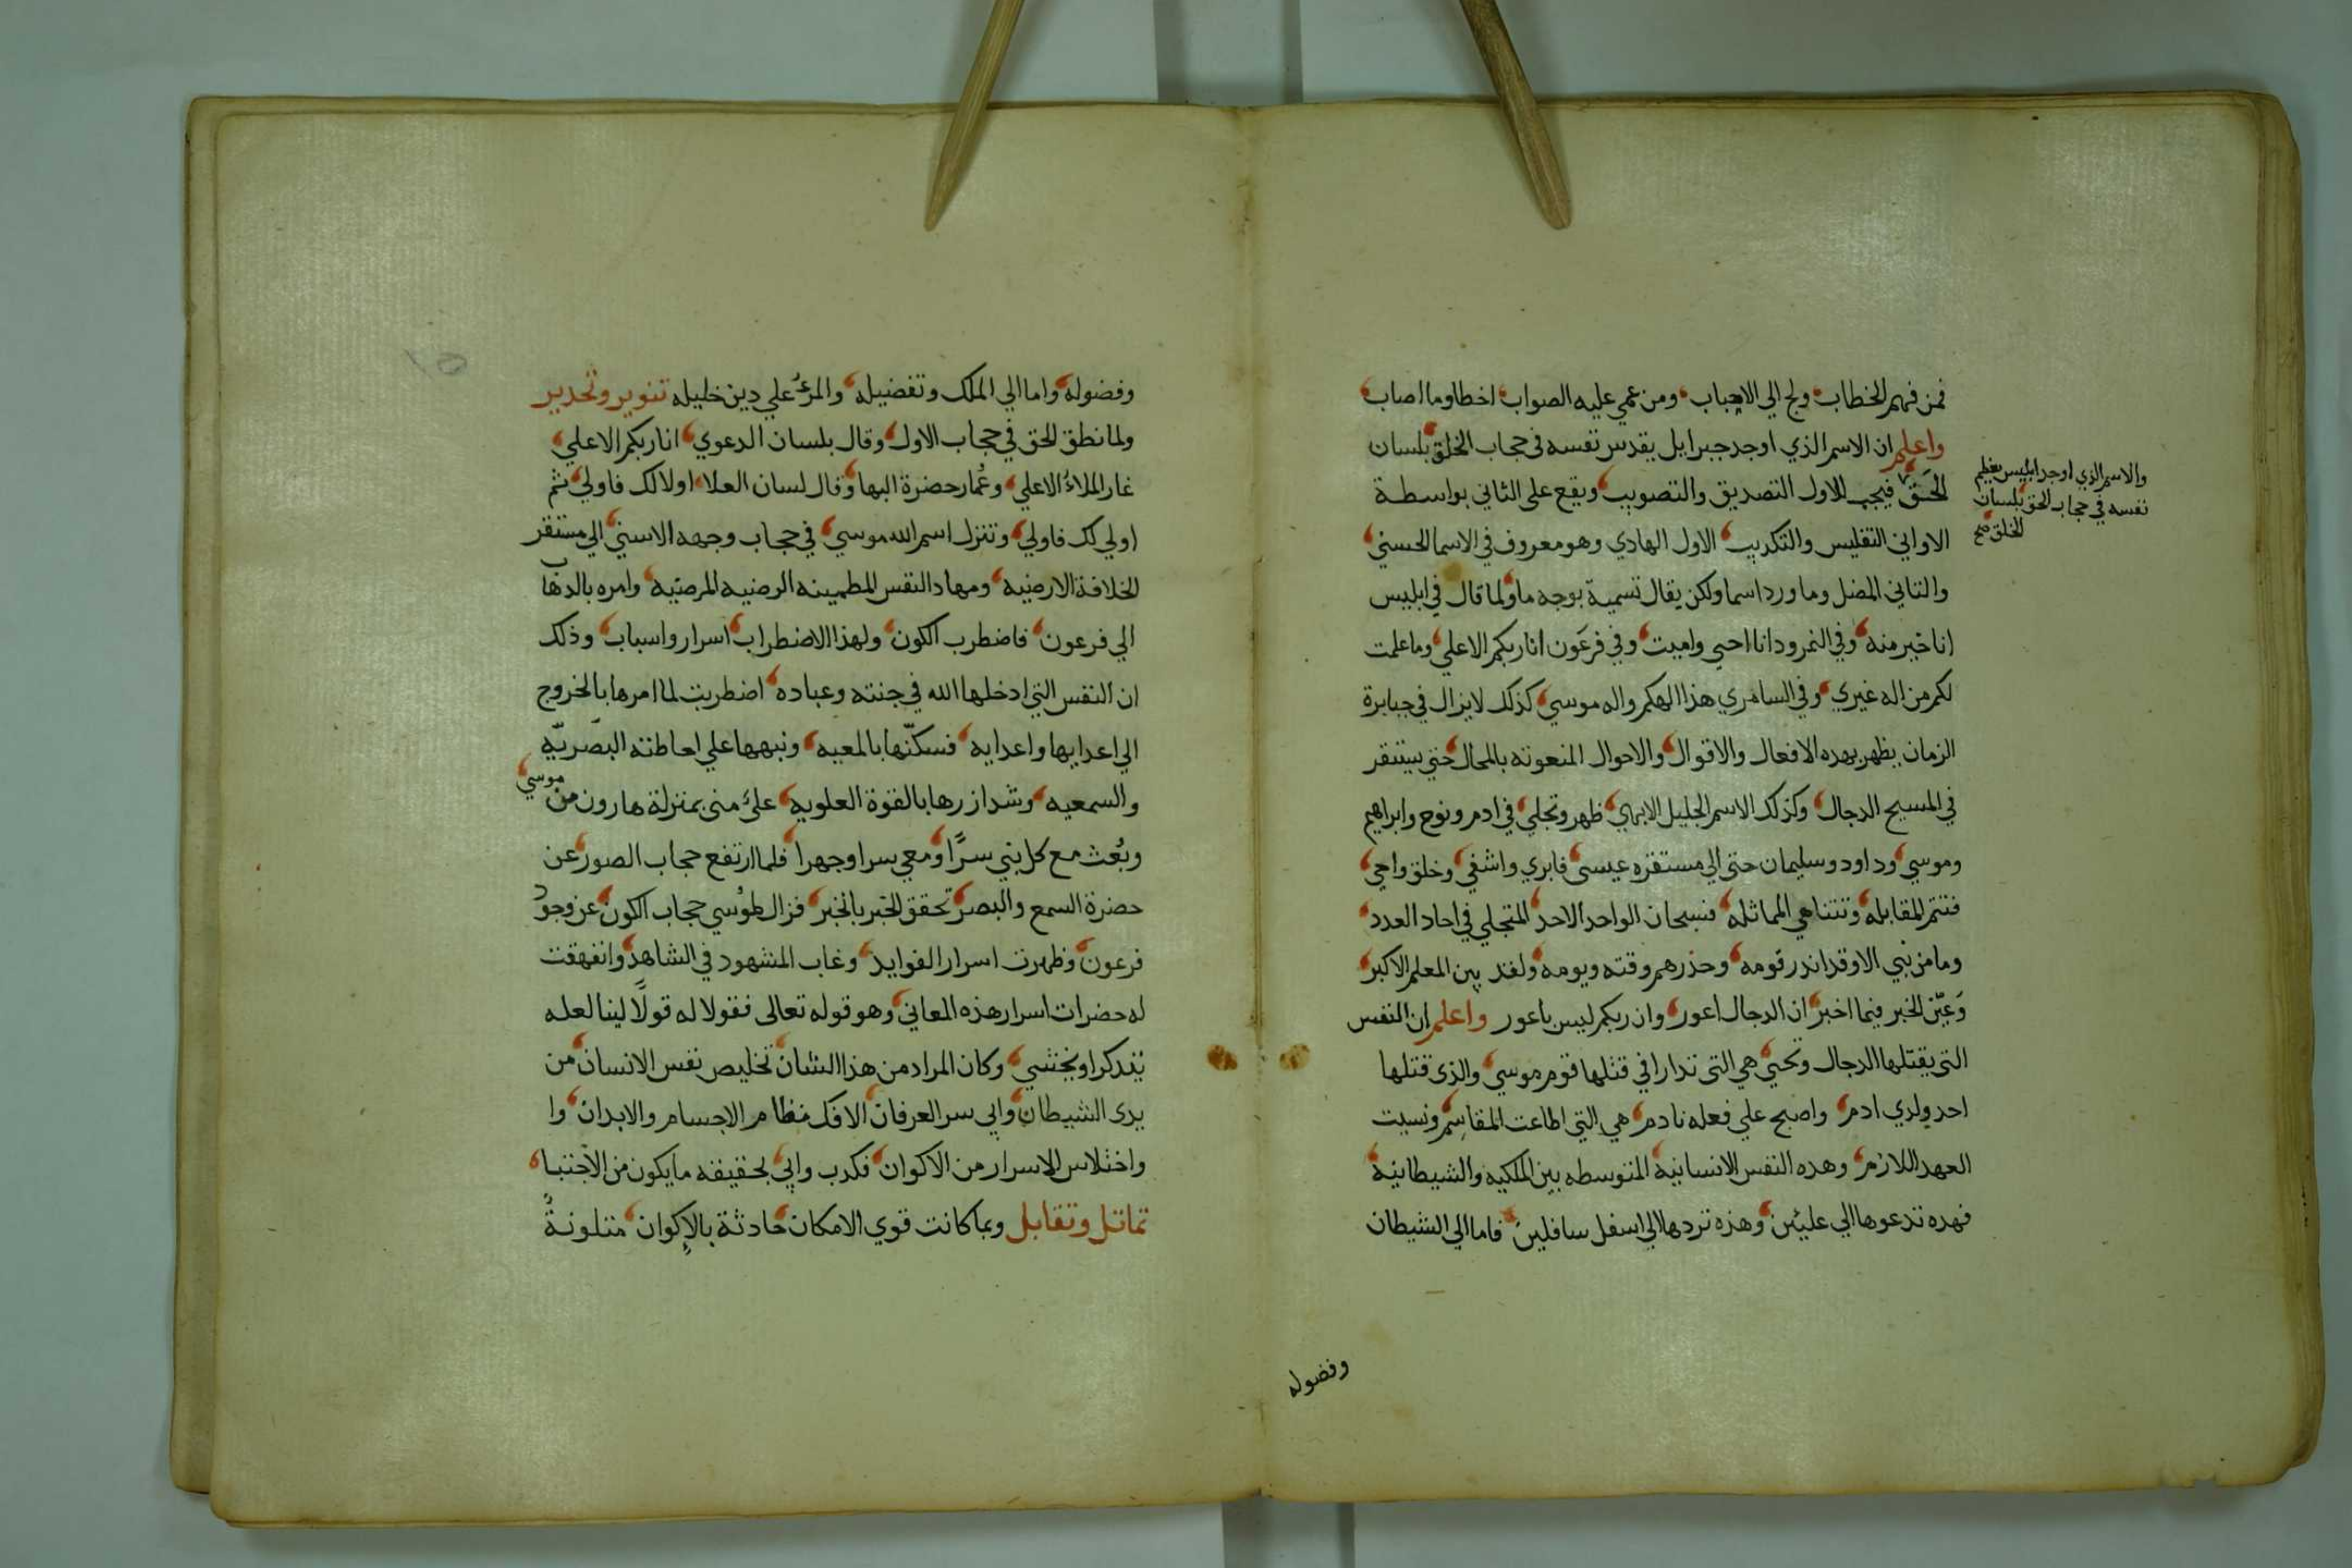 فمن فهم الخطاب ولج الي الاعجاب ومن عمي عليه الصواب اخطا وما اصاب
واعلم ان الاسم الذي اوجد جبرايل يقدس نفسه في حجاب الخلق بلسان
الحَق فيجب للاول التصديق والتصويب ويقع على الثاني بواسطة
الاواني التفليس والتكديب الاول الهادي وهو معروف في الاسما الحسني
والثاني المضل وما ورد اسما ولكن يقال تسمية بوجه ما ولما قال في ابليس
انا خير منه وفي النمرود انا احيي واميت وفي فرعَون انا ربكم الاعلي وما علمت
لكم من اله غيري وفي السامري هذا الهكم واله موسي كذلك لا يزال في جبابرة
الزمان يظهر بهده الافعال والاقوال والاحوال المنعوته بالمحال حتي يستقر
في المسيح الدجال وكذلك الاسم الجليل الابهي ظهر وتجلي في ادم ونوح وابراهيم
وموسي وداود وسليمان حتى الي مستقره عيسى فابري واشفي وخلق واحي
فتتم المقابله وتتناهي المماثله فسبحان الواحد الاحد المتجلي في احاد العدد
وما من نبي الا وقد اندر قومه وحذرهم وقته ويومه ولقد بين المعلم الاكبر
وَعيّن الخبر فيما اخبر ان الدجال اعور وان ربكم ليس باعور واعلم ان النفس
التي يقتلها الدجال وتحيي هي التي تدارا في قتلها قوم موسي والذي قتلها
احد ولدي ادم واصبح علي فعله نادم هي التي اطاعت المقاسِم ونسيت
العهد اللازم وهده النفس الانسانية المتوسطه بين الملكيه والشيطانية
فهده تدعوها الي عليّين وهذه تردها الي اسفل سافلين فاما الي الشيطان
والاسم الذي اوجد ابليس يعظم
نفسه في حجاب الحق بلسان
الخلق صح
وفضوله
وفضوله واما الي الملك وتفضيله والمرءُ علي دين خليله تنوير وتحدير
ولما نطق الحق في حجاب الاول وقال بلسان الدعوي انا ربكم الاعلي
غار الملاءُ الاعلي وعُمار حضرة البها وقال لسان العلا اولا لك فاولي ثم
اولي لك فاولي وتنزل اسم الله موسي في حجاب وجهه الاسني الي مستقر
الخلافة الارضيه ومهاد النفس المطمينه الرضيه المرضيه وامره بالدهاب
الي فرعون فاضطرب الكون ولهذا الاضطراب اسرار واسباب وذلك
ان النفس التي ادخلها الله في جنته وعباده اضطربت لما امرها بالخروج
الي اعدايها واعدايه فسكّنها بالمعيه ونبهها علي احاطته البصريّه
والسمعيه وشد ازرها بالقوة العلويه عليٌ مني بمنزلة هارون من موسي
وبُعث مع كل نبي سرًا ومعي سرا وجهرا فلما ارتفع حجاب الصور عن
حضرة السمع والبصر تحقق الخبر بالخبر فزال لموُسي حجاب الكون عن وجود
فرعون وظهرت اسرار الفوايد وغاب المشهود في الشاهد وانفهقت
له حضرات اسرار هذه المعاني وهو قوله تعالى فقولا له قولًا لينا لعله
يتدكر او يخشي وكان المراد من هذا الشان تخليص نفس الانسان من
يدى الشيطان وابي سر العرفان الا فك نظام الاجسام والابدان وا
واختلاس الاسرار من الاكوان فكدب وابي لحقيقه ما يكون من الاجتبا
تماثل وتقابل وبما كانت قوي الامكان حادثة بالاكوان متلونةً